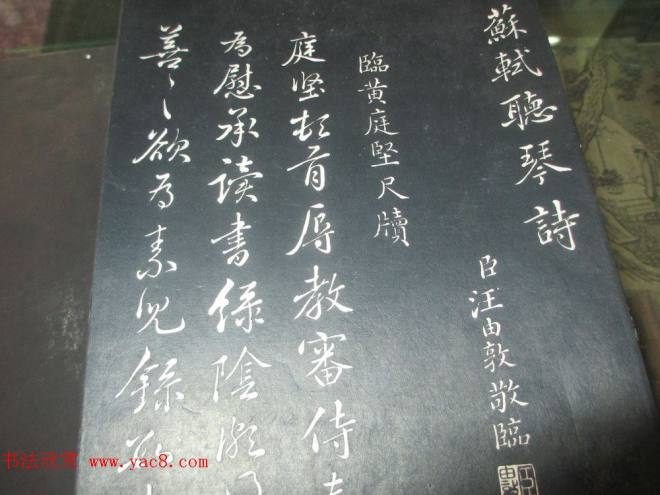 蘇軾聽琴詩
臣汪由敦敬臨
臨黃庭堅尺牘
庭堅頓首辱教審侍
為慰承讀書綠陰
善〻欲為素兒錄
书法欣赏 www.yac8.com